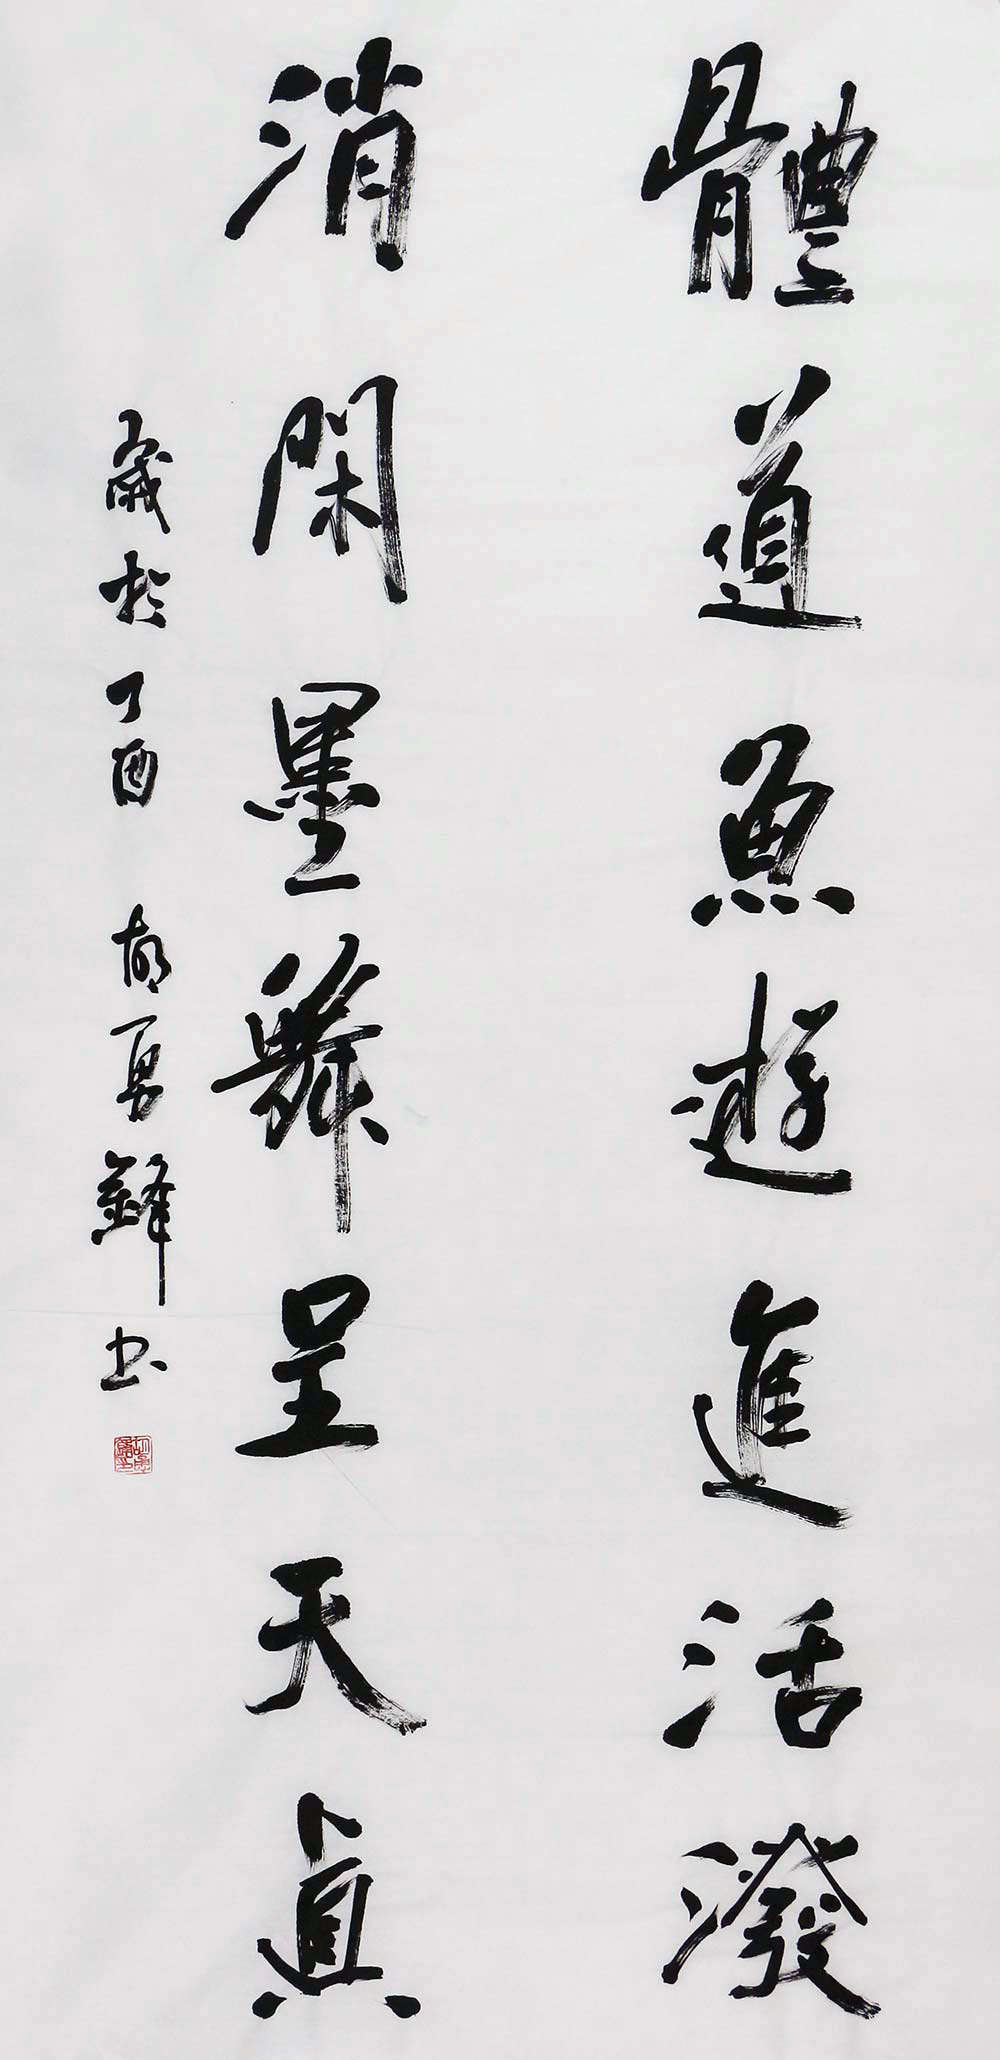 體道魚遊進活潑
消閑墨舞呈天真
歲於丁酉 胡勇鋒书